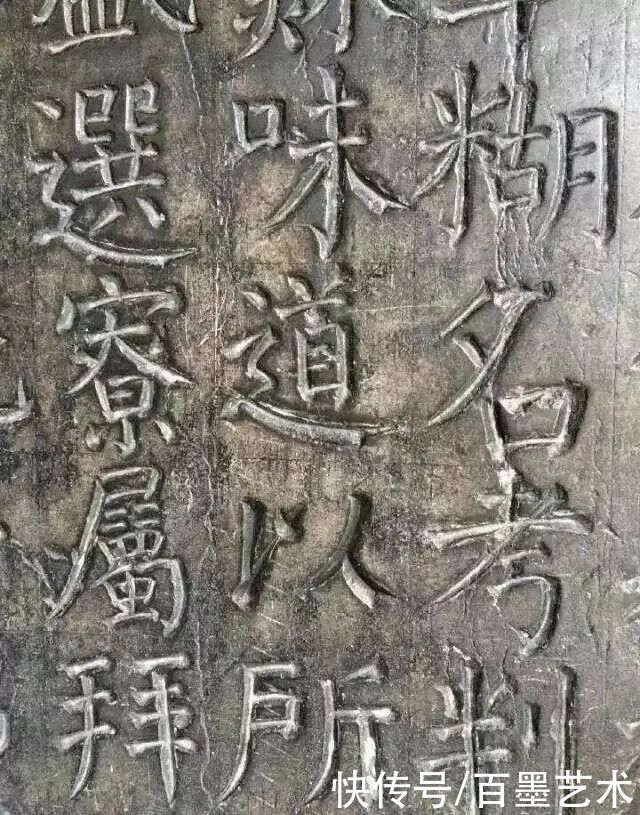 糊名考判
蘇味道以所
盛選寮屬拜
快传号/百墨艺术